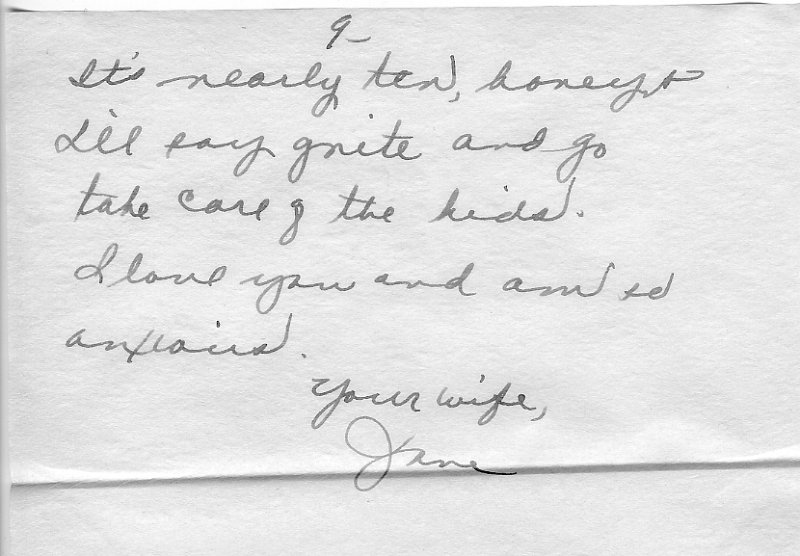 9-
It's nearly ten, honey, +
I'll say gnite and go
take care of the kids.
I love you and am so
anxious.
Your wife,
Jane